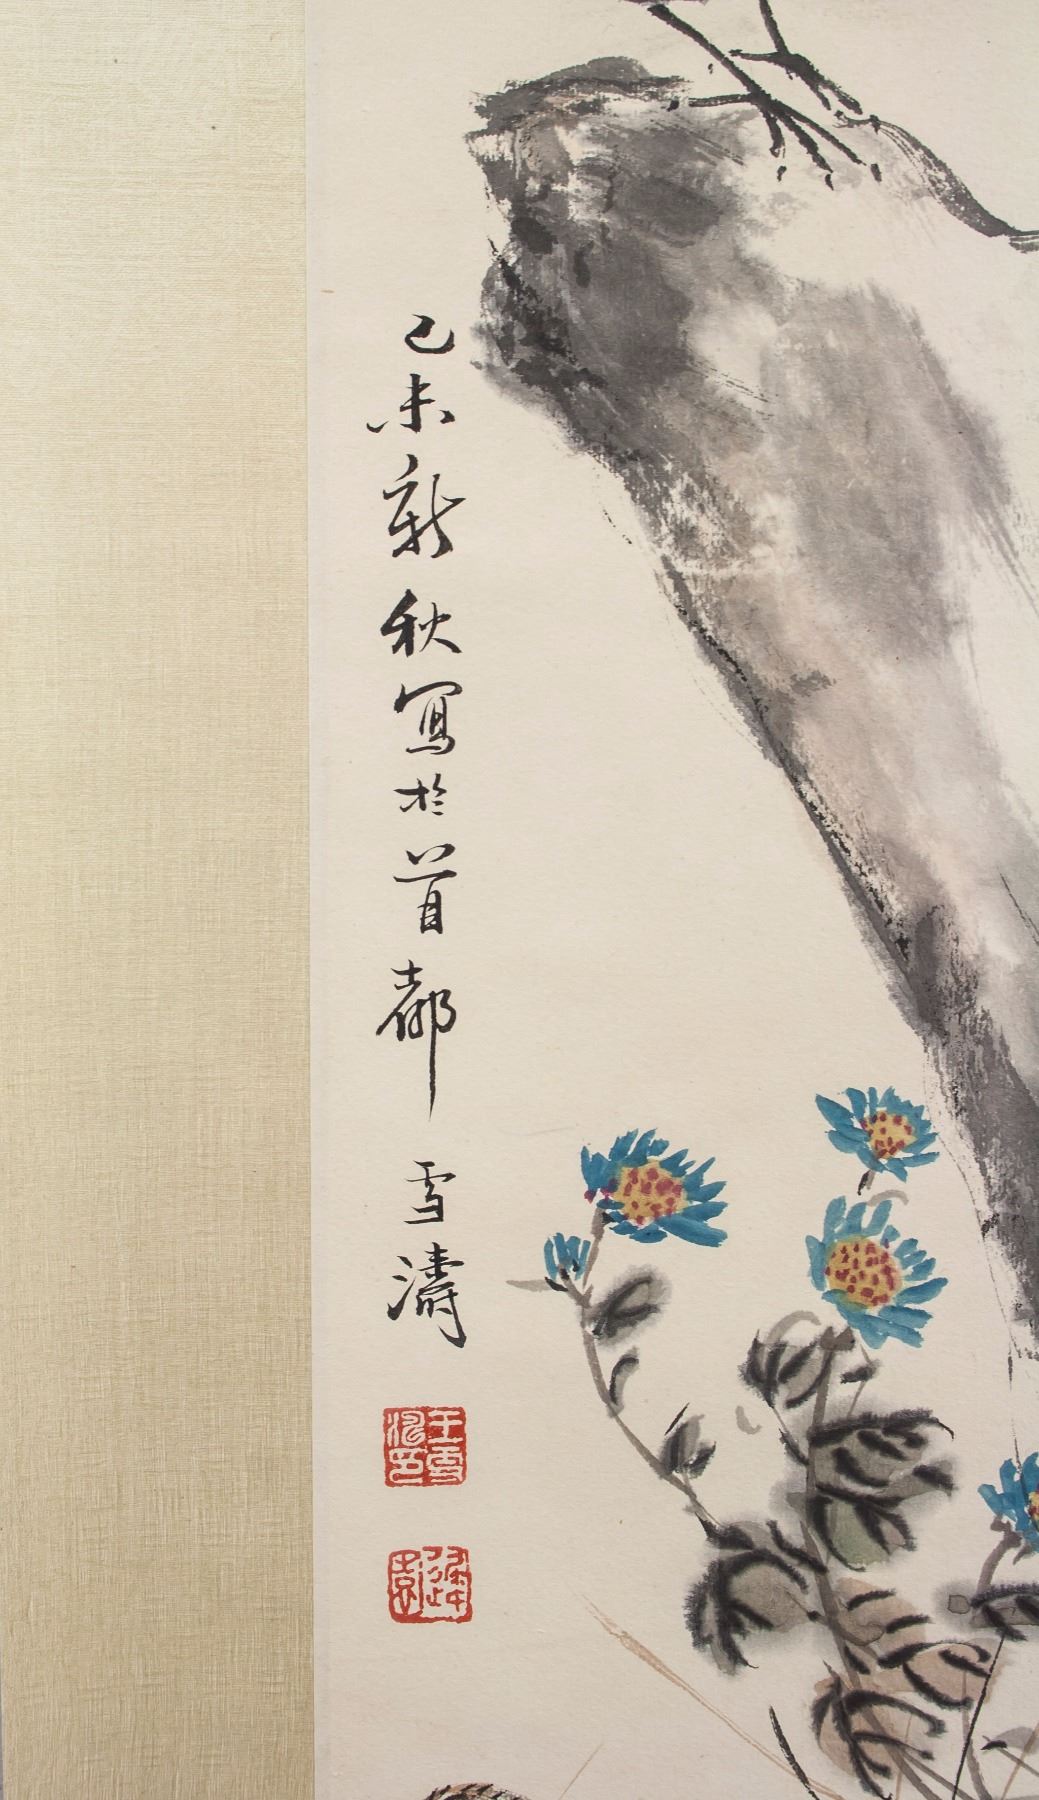 己未新秋写於首都 雪濤
王雪濤印